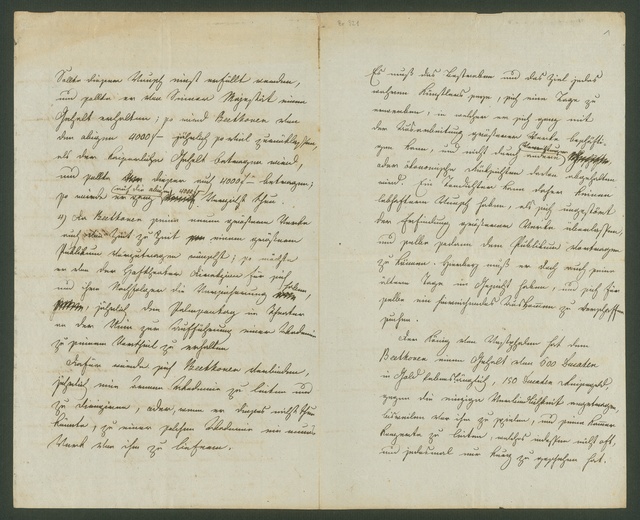 Sollte dieser Wunsch einst erfüllt werden,
und sollte er von Seiner Majestät einen
Gehalt erhalten; so wird Beethoven von
den obigen 4000/- jährlich so viel zurücklassen,
als der Kaiserliche Gehalt betragen wird,
und sollte dieser auch 4000/- betragen;
auf die obigen 4000/-
so würde er ganz Verzicht thun.
4) Da Beethoven seine neuen größern Werke
auch von Zeit zu Zeit einem größern
Publikum vorzutragen wünscht; so möchte
er von der Hoftheater Direkzion für sich
und ihre Nachfolger die Versicherung haben,
jährlich den Palmsontag im Theater
an der Wien zur Aufführung einer Akademie
zu seinem Vortheil zu erhalten
Dafür würde sich Beethoven verbinden,
jährlich eine Armen Akademie zu leiten und
zu dirigieren, oder, wenn er dieses nicht thun
könnte, zu einer solchen Akademie ein neues
Werk von ihm zu liefern.
1
Es muß das Bestreben und das Ziel jedes
wahren Künstlers seyn, sich eine Lage zu
erwerben, in welcher er sich ganz mit
der Ausarbeitung größerer Werke beschäfti-
gen kann, und nicht durch andere
oder ökonomische Rücksichten davon abgehalten
wird. Ein Tondichter kann daher keinen
lebhaftern Wunsch haben, als sich ungestört
der Erfindung größerer Werke überlassen,
und selbe sodann dem Publikum vortragen
zu können. Hierbey muß er doch auch seine
ältern Tage im Gesicht haben, und sich für
selbe ein hinreichendes Auskommen zu verschaffen
suchen.
Der König von Westphalen hat dem
Beethoven einen Gehalt von 600 Ducaten
in Gold lebenslänglich, 150 Ducaten Reisegeld,
gegen die einzige Verbindlichkeit angetragen,
bisweilen vor ihm zu spielen, und seine Kammer
Konzerte zu leiten, welches indessen nicht oft,
und jedesmal nur kurz zu geschehen hat.